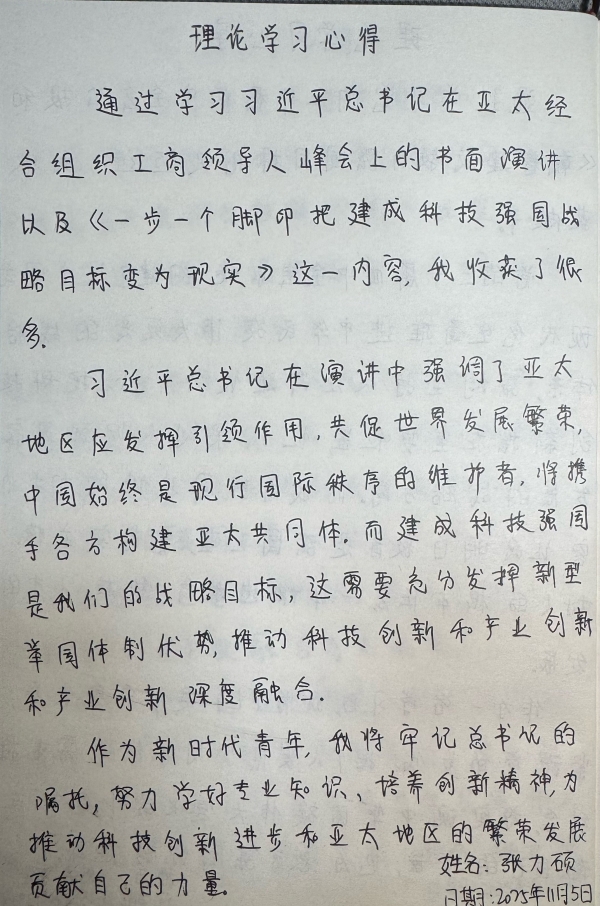 理论学习心得
通过学习习近平总书记在亚太经
合组织工商领导人峰会上的书面演讲
以及《一步一个脚印把建成科技强国战
略目标变为现实》这一内容,我收获了很
多.
习近平总书记在演讲中强调了亚太
地区应发挥引领作用,共促世界发展繁荣,
中国始终是现行国际秩序的维护者,将携
手各方构建亚太共同体.而建成科技强国
是我们的战略目标,这需要充分发挥新型
举国体制优势,推动科技创新和产业创新
和产业创新深度融合.
作为新时代青年,我将牢记总书记的
嘱托,努力学好专业知识、培养创新精神,为
推动科技创新进步和亚太地区的繁荣发展
贡献自己的力量。
姓名:张力硕
日期:2025年11月5日